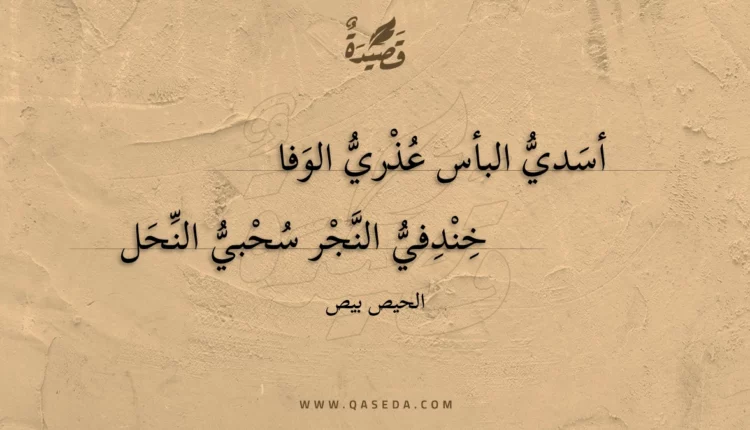 قَصِيدَةٌ
أسَديُّ البأس عُذْريُّ الوَفا
خِنْدِفيُّ النَّجْر سُحْبيُّ النِّحَل
الحيص بيص
WWW.QASEDA.COM